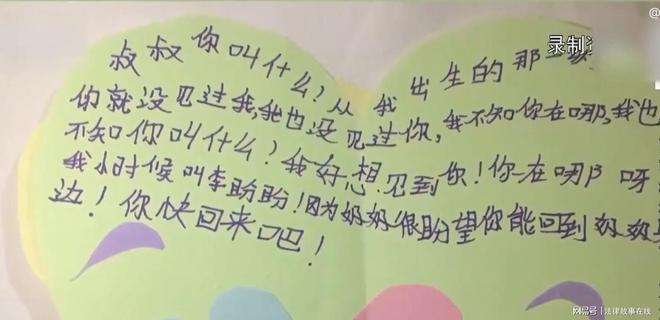 录制
叔叔你叫什么?从我出生的那一
你就没见过我,我也没见过你,我不知你在哪,我也
不知你叫什么?我好想见到你!你在哪呀
我小时候叫李盼盼!因为奶奶很盼望你能回到奶奶
边!你快回来吧!
网易号 | 法律故事在线